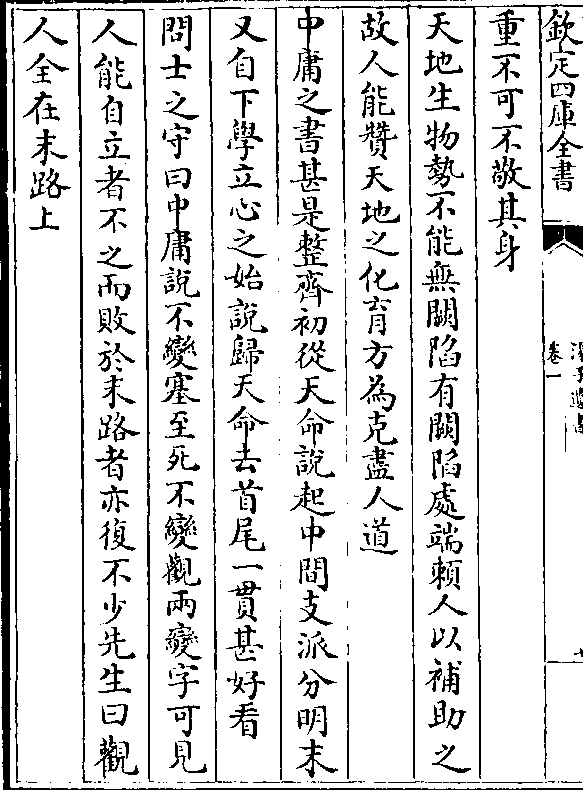 欽定四庫全書
卷一
重不可不敬其身
天地生物勢不能無闕陷有闕陷處端賴人以補助之
故人能贊天地之化育方為克盡人道
中庸之書甚是整齊初從天命說起中間支派分明末
又自下學立心之始說歸天命去首尾一貫甚好看
問士之守曰中庸說不變塞至死不變觀兩變字可見
人能自立者不乏而敗於末路者亦復不少先生曰觀
人全在末路上